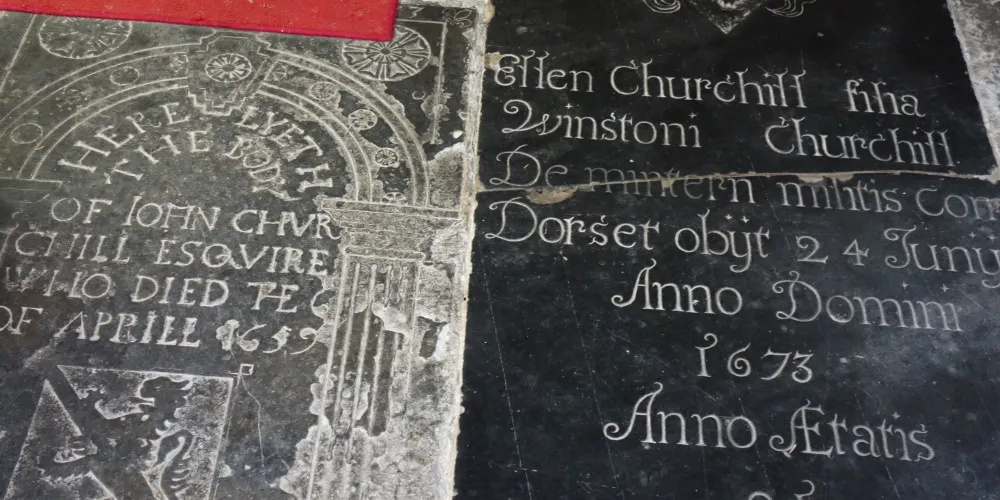 HERE LYETH
THE BODY
OF IOHN CHVR
CHILL ESQVIRE
WHO DIED THE 6
OF APRILL 1659
Ellen Churchill filia
Winstoni Churchill
De mintern militis Com
Dorset obijt 24 Junij
Anno Domini
1673
Anno Ætatis